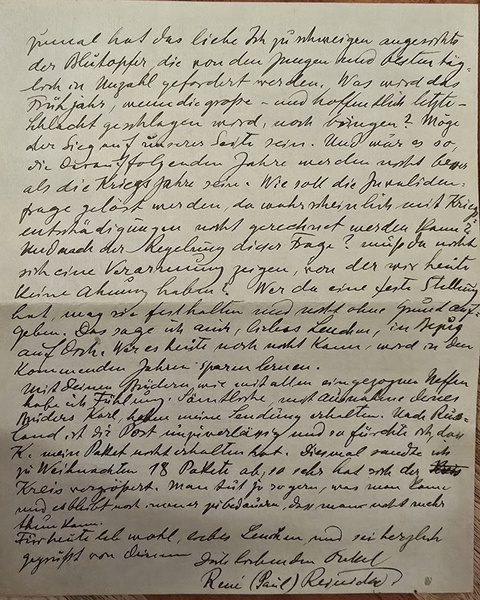 zumal hat das liebe Ich zu schweigen angesichts
der Blutopfer, die von den Jungen und Besten täg-
lich in Unzahl gefordert werden. Was wird das
Frühjahr, wenn die große – und hoffentlich letzte –
Schlacht geschlagen wird, noch bringen? Möge
der Sieg auf unserer Seite sein. Und wär es so,
die darauffolgenden Jahre werden nicht besser
als die Kriegsjahre sein. Wie soll die Invaliden-
frage gelöst werden, da wahrscheinlich mit Kriegs-
entschädigungen nicht gerechnet werden kann?
Und nach der Regelung dieser Frage? muß da nicht
sich eine Verarmung zeigen, von der wir heute
keine Ahnung haben? Wer da eine feste Stellung
hat, mag sie festhalten und nicht ohne Grund auf-
geben. Das sage ich auch, liebes Lenchen, in Bezug
auf Dich. Wer es heute noch nicht kann, wird in den
kommenden Jahren sparen lernen.
Mit Deinen Brüdern, wie mit allen eingezogenen Neffen
habe ich Fühlung. Sämtliche, mit Ausnahme Deines
Bruders Karl, haben meine Sendung erhalten. Nach Russ-
land ist die Post unzuverlässig und so fürchte ich, dass
K. mein Paket nicht erhalten hat. Diesmal sandte ich
zu Weihnachten 18 Pakete ab, so sehr hat sich der
Kreis vergrößert. Man tut ja so gern, was man kann
und es bleibt noch immer zu bedauern, dass man nicht mehr
thun kann.
Für heute leb wohl, liebes Lenchen, und sei herzlich
gegrüßt von Deinem
Dich liebenden Onkel
René (Paul)